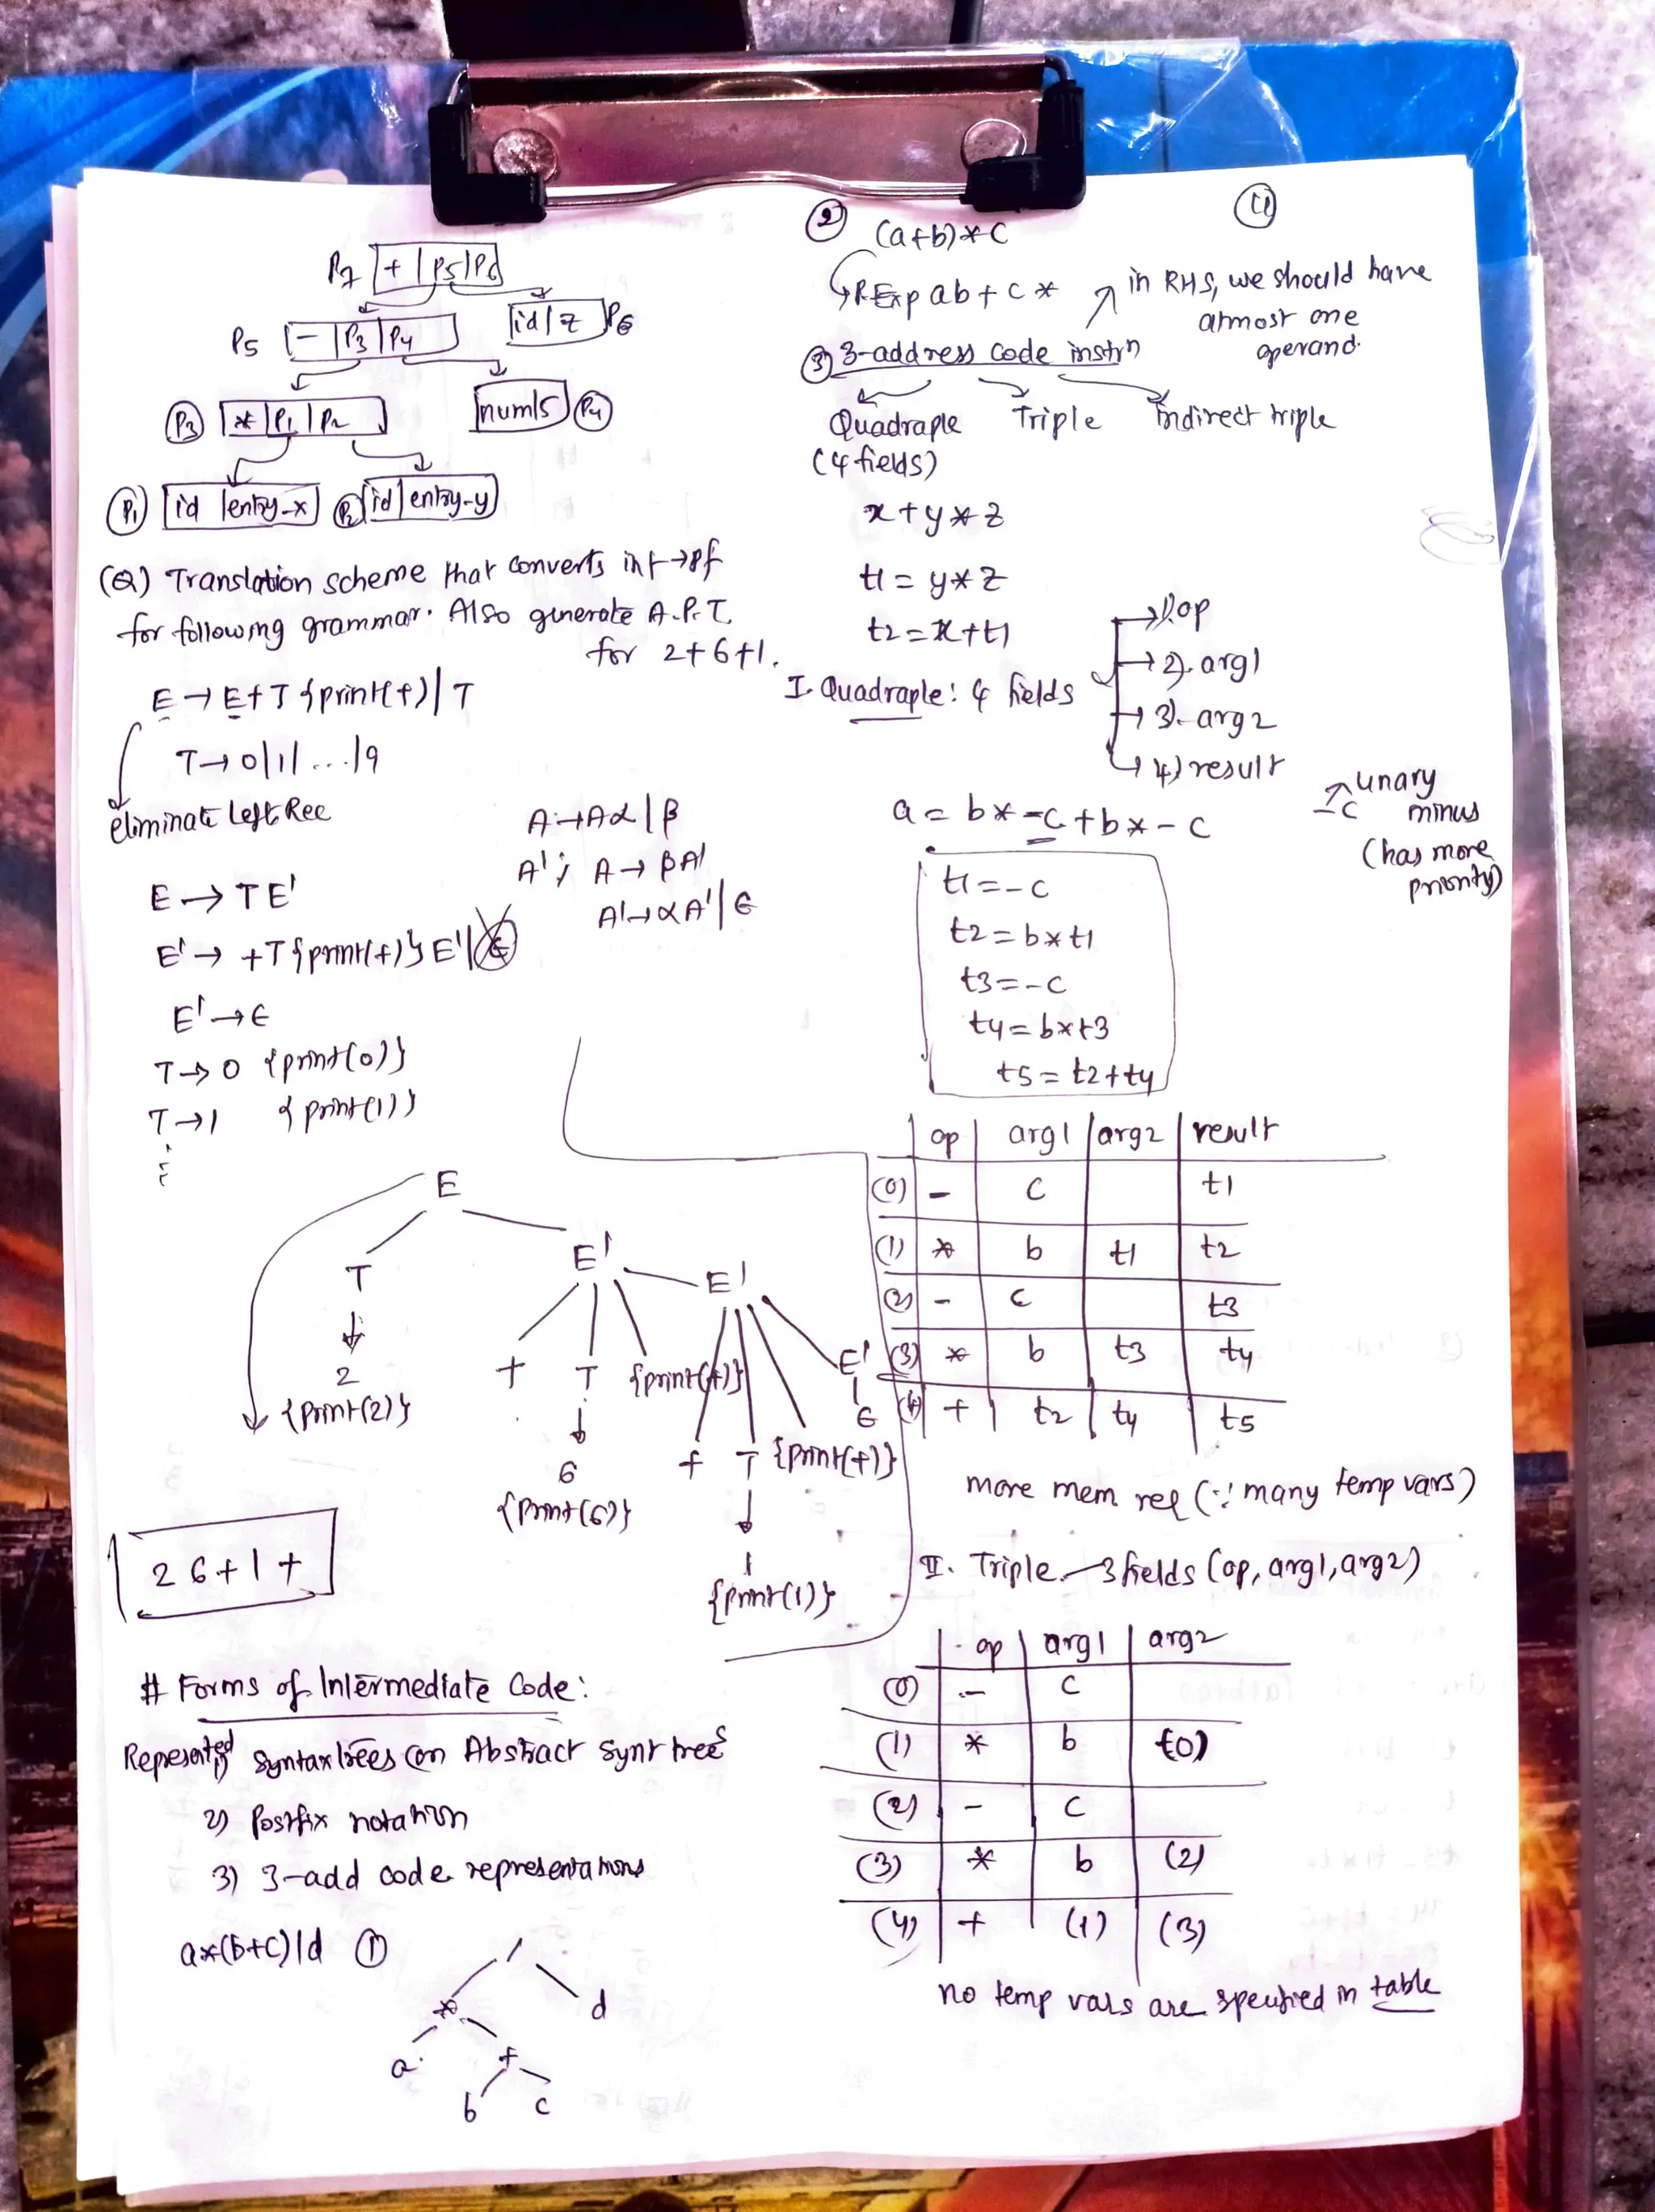 P7 + | P5 | P6
P5 - | P3 | P4
id | z P6
P3 * | P1 | P2
num | 5 P4
P1 id | entry-x P2 id | entry-y
(Q) Translation scheme that converts inf → pf
for following grammar. Also generate A.P.T.
for 2+6+1.
E → E+T {print(+)} | T
T → 0|1|...|9
eliminate Left Rec
A → Aα | β
A' ; A → βA'
A' → αA' | ϵ
E → TE'
E' → +T{print(+)} E' |
E' → ϵ
T → 0 {print(0)}
T → 1 {print(1)}
E
T E' E'
2 + T {print(+)} E'
{print(2)} ϵ
6 + T {print(+)}
{print(6)}
1
{print(1)}
26+1+
# Forms of Intermediate Code:
Represented 1) Syntax trees (or) Abstract Synt trees
2) Postfix notation
3) 3-add code representations
a*(b+c)/d ①
/
* d
a +
b c
④
② (a+b)*c
↳ RExp ab+c*
in RHS, we should have
atmost one
operand.
③ 3-address code instrn
Quadraple Triple Indirect triple
(4 fields)
x+y*z
t1 = y*z
t2 = x+t1
I. Quadraple: 4 fields
→ 1). op
→ 2). arg1
→ 3). arg2
→ 4) result
a = b*-c+b*-c
-c unary
minus
(has more
priority)
t1 = -c
t2 = b*t1
t3 = -c
t4 = b*t3
t5 = t2+t4
op arg1 arg2 result
(0) - c t1
(1) * b t1 t2
(2) - c t3
(3) * b t3 t4
(4) + t2 t4 t5
more mem req (∵ many temp vars)
II. Triple - 3 fields (op, arg1, arg2)
op arg1 arg2
(0) - c
(1) * b (0)
(2) - c
(3) * b (2)
(4) + (1) (3)
no temp vars are specified in table